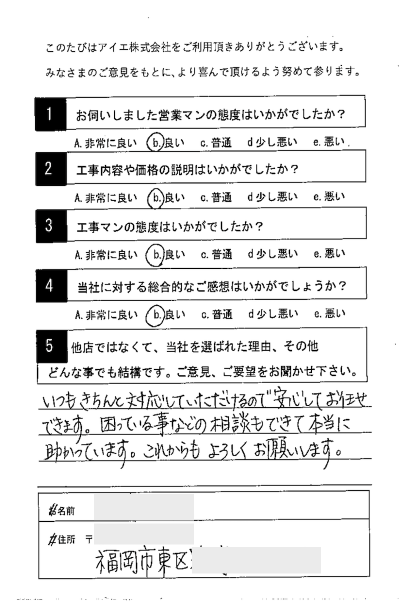 このたびはアイエ株式会社をご利用頂きありがとうございます。
みなさまのご意見をもとに、より喜んで頂けるよう努めて参ります。
1 お伺いしました営業マンの態度はいかがでしたか？
A.非常に良い b.良い c.普通 d少し悪い e.悪い.
2 工事内容や価格の説明はいかがでしたか？
A.非常に良い b.良い c.普通 d少し悪い e.悪い
3 工事マンの態度はいかがでしたか？
A.非常に良い b.良い c.普通 d少し悪い e.悪い
4 当社に対する総合的なご感想はいかがでしょうか？
A.非常に良い b.良い c.普通 d少し悪い e.悪い
5 他店ではなくて、当社を選ばれた理由、その他
どんな事でも結構です。ご意見、ご要望をお聞かせ下さい。
いつもきちんと対応していただけるので安心してお任せ
できます。困っている事などの相談もできて本当に
助かっています。これからもよろしくお願いします。
お名前
ご住所 〒
福岡市東区